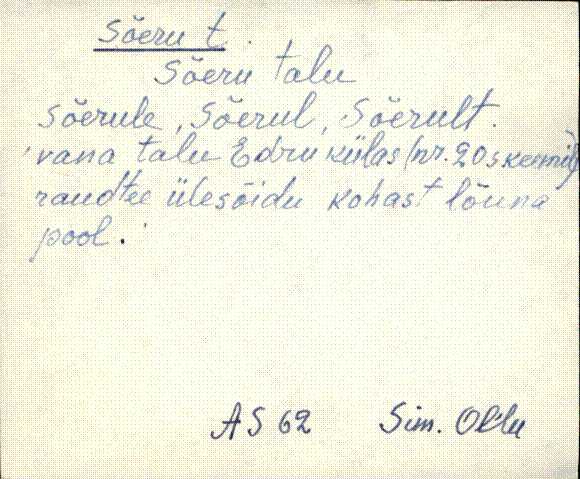 Sõeru t.
Sõeru talu
Sõerule, Sõerul, Sõerult.
vana talu Edru külas (nr. 20 skeemil)
raudtee ülesõidu kohast lõuna
pool.
AS 62 Sim. Ollu